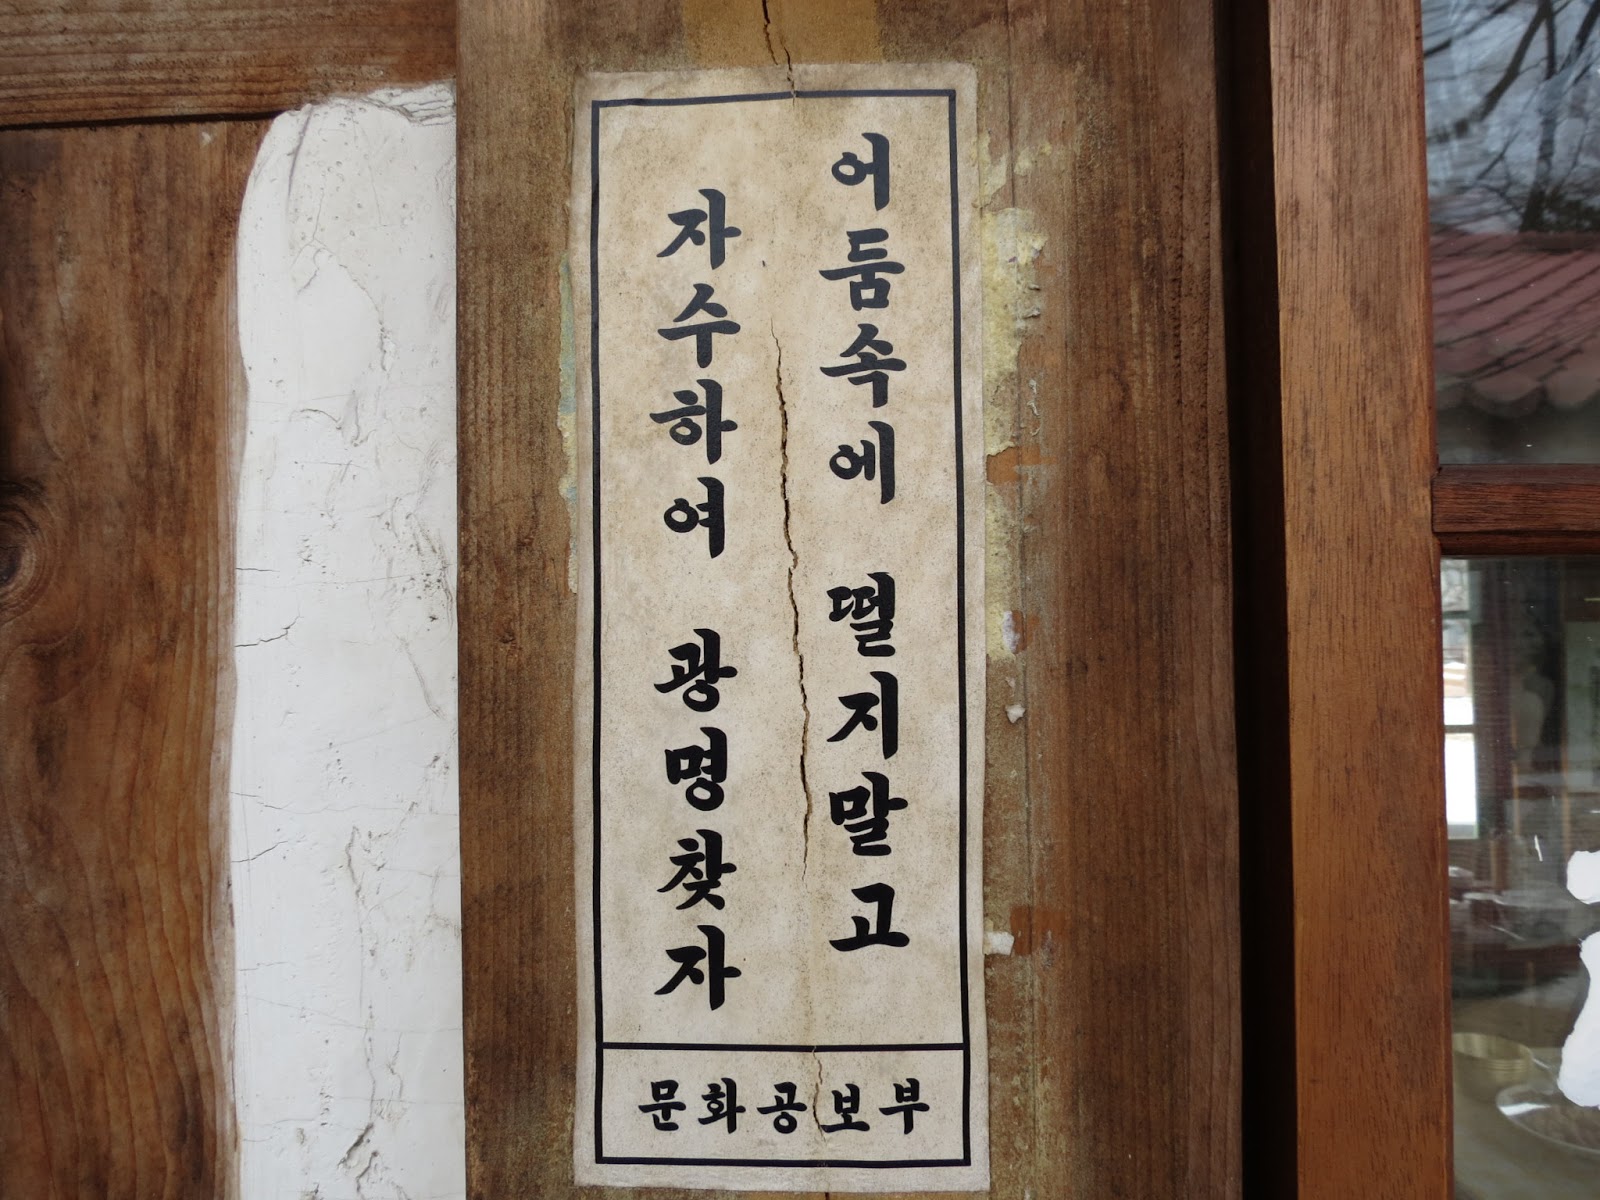 어둠속에 떨지말고
자수하여 광명찾자
문화공보부